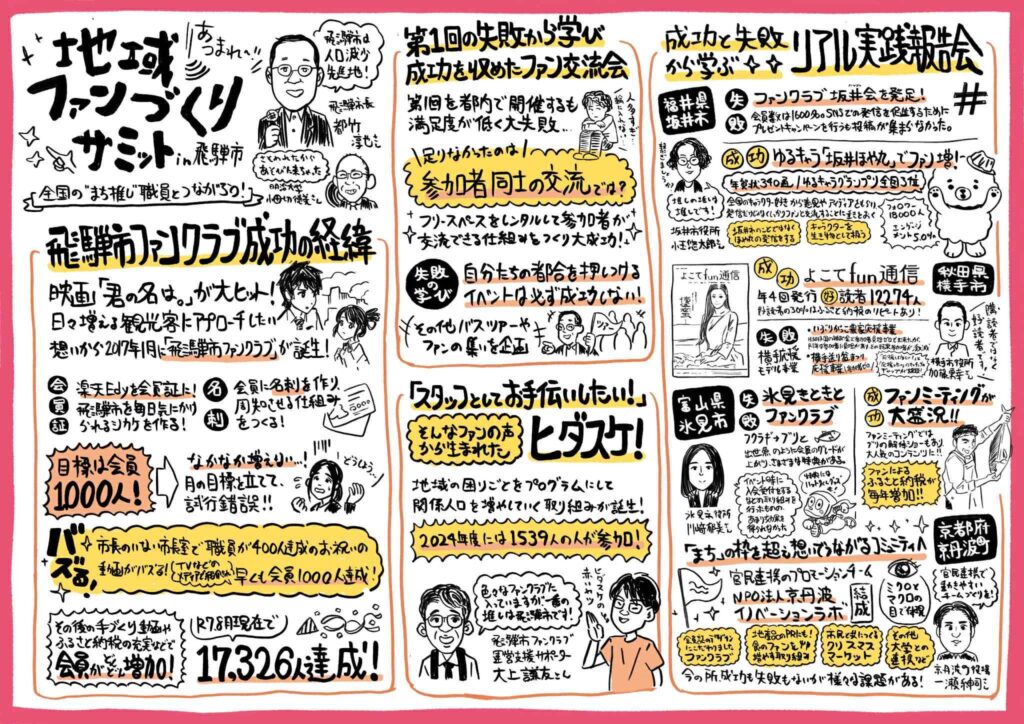 地域
ファンづくり
サミット in 飛騨市
あつまれ〜!!
飛騨市は
人口減少
先進地!
飛騨市長
都竹
淳也さん
全国の"まち推し"職員とつながろう!
飛騨市ファンクラブ成功の経緯
映画「君の名は。」が大ヒット!
日々増える観光客にアプローチしたい
想いから2017年1月に「飛騨市ファンクラブ」が誕生!
会員証
楽天Edyを会員証に!
飛騨市を毎日気にかけ
られるシカケを作る!
名刺
会員に名刺を作り、
周知させる仕組み
をつくる!
目標は会員
1000人!
なかなか増えない…!
月の目標を立てて、
試行錯誤!!
どうしよう…
バズる!
市長のいない市長室で職員が400人達成のお祝いの
動画がバズる!
早くも会員1000人達成!
その後の手づくり動画や
ふるさと納税の充実などで
会員がどんどん増加!
R7.8月現在で
17,326人達成!
第1回の失敗から学び
成功を収めたファン交流会
第1回を都内で開催するも
満足度が低く大失敗…
足りなかったのは
参加者同士の交流では?
フリースペースをレンタルして参加者が
交流できる仕組みをつくり大成功!
失敗の学び
自分たちの都合を押しつける
イベントは必ず成功しない!
その他バスツアーや
ファンの集いを企画
「スタッフとしてお手伝いしたい!」
そんなファンの声
から生まれた
ヒダスケ!
地域の困りごとをプログラムにして
関係人口を増やしていく取り組みが誕生!
2024年度には1539人の人が参加!
色々なファンクラブに
入っていますが一番の
推しは飛騨市です!
飛騨市ファンクラブ
運営支援サポーター
大上謙友さん
ヒダスケの
赤いシャツ
成功と失敗
から学ぶ
リアル実践報告会
#
福井県
坂井市
失敗
ファンクラブ坂井会を発足!
会員数は1600名。SNSでの発信を促進するために
プレゼントキャンペーンを行うも投稿が集まらなかった。
成功
ゆるキャラ「坂井ほや丸」でファン増!
年賀状340通!ゆるキャラグランプリ全国3位
フォロワー
18000人
エンゲージ
メント5.0%
推しの推しは
推しです!
坂井市役所
キャラクターを
生き物として扱う
よこてfun通信
成功
よこてfun通信
年4回発行
好読者12274人
好読者の30%はふるさと納税のリピートあり!
秋田県
横手市
失敗
横手応援
モデル事業
横手市役所
富山県
氷見市
失敗
氷見きときと
ファンクラブ
フクラギ→ブリと
出世魚のように会員のグレードが
上がり、さまざまな特典がある。
イベント時に
入会受付をする
などの取り組みを
行ったものの、
氷見市役所
成功
ファンミーティングが
大盛況!!
ファンミーティングでは
ブリの解体ショーもあり、
大人気のコンテンツに!!
ファンによる
ふるさと納税が
毎年増加!!
京都府
京丹波町
「まち」の枠を超え想いでつながるコミュニティへ
官民連携のプロモーションチーム
NPO法人京丹波
イノベーションラボ
結成
ミクロ×
マクロの
目で体現
官民連携で
動きやすい
チームづくりを!
ファンクラブ
地産品のPRにも!
食のファンを
増やす取り組み
市民と共につくる
クリスマス
マーケット
その他
大学との
連携など
京丹波町役場
今の所、成功も失敗もないが様々な課題がある!